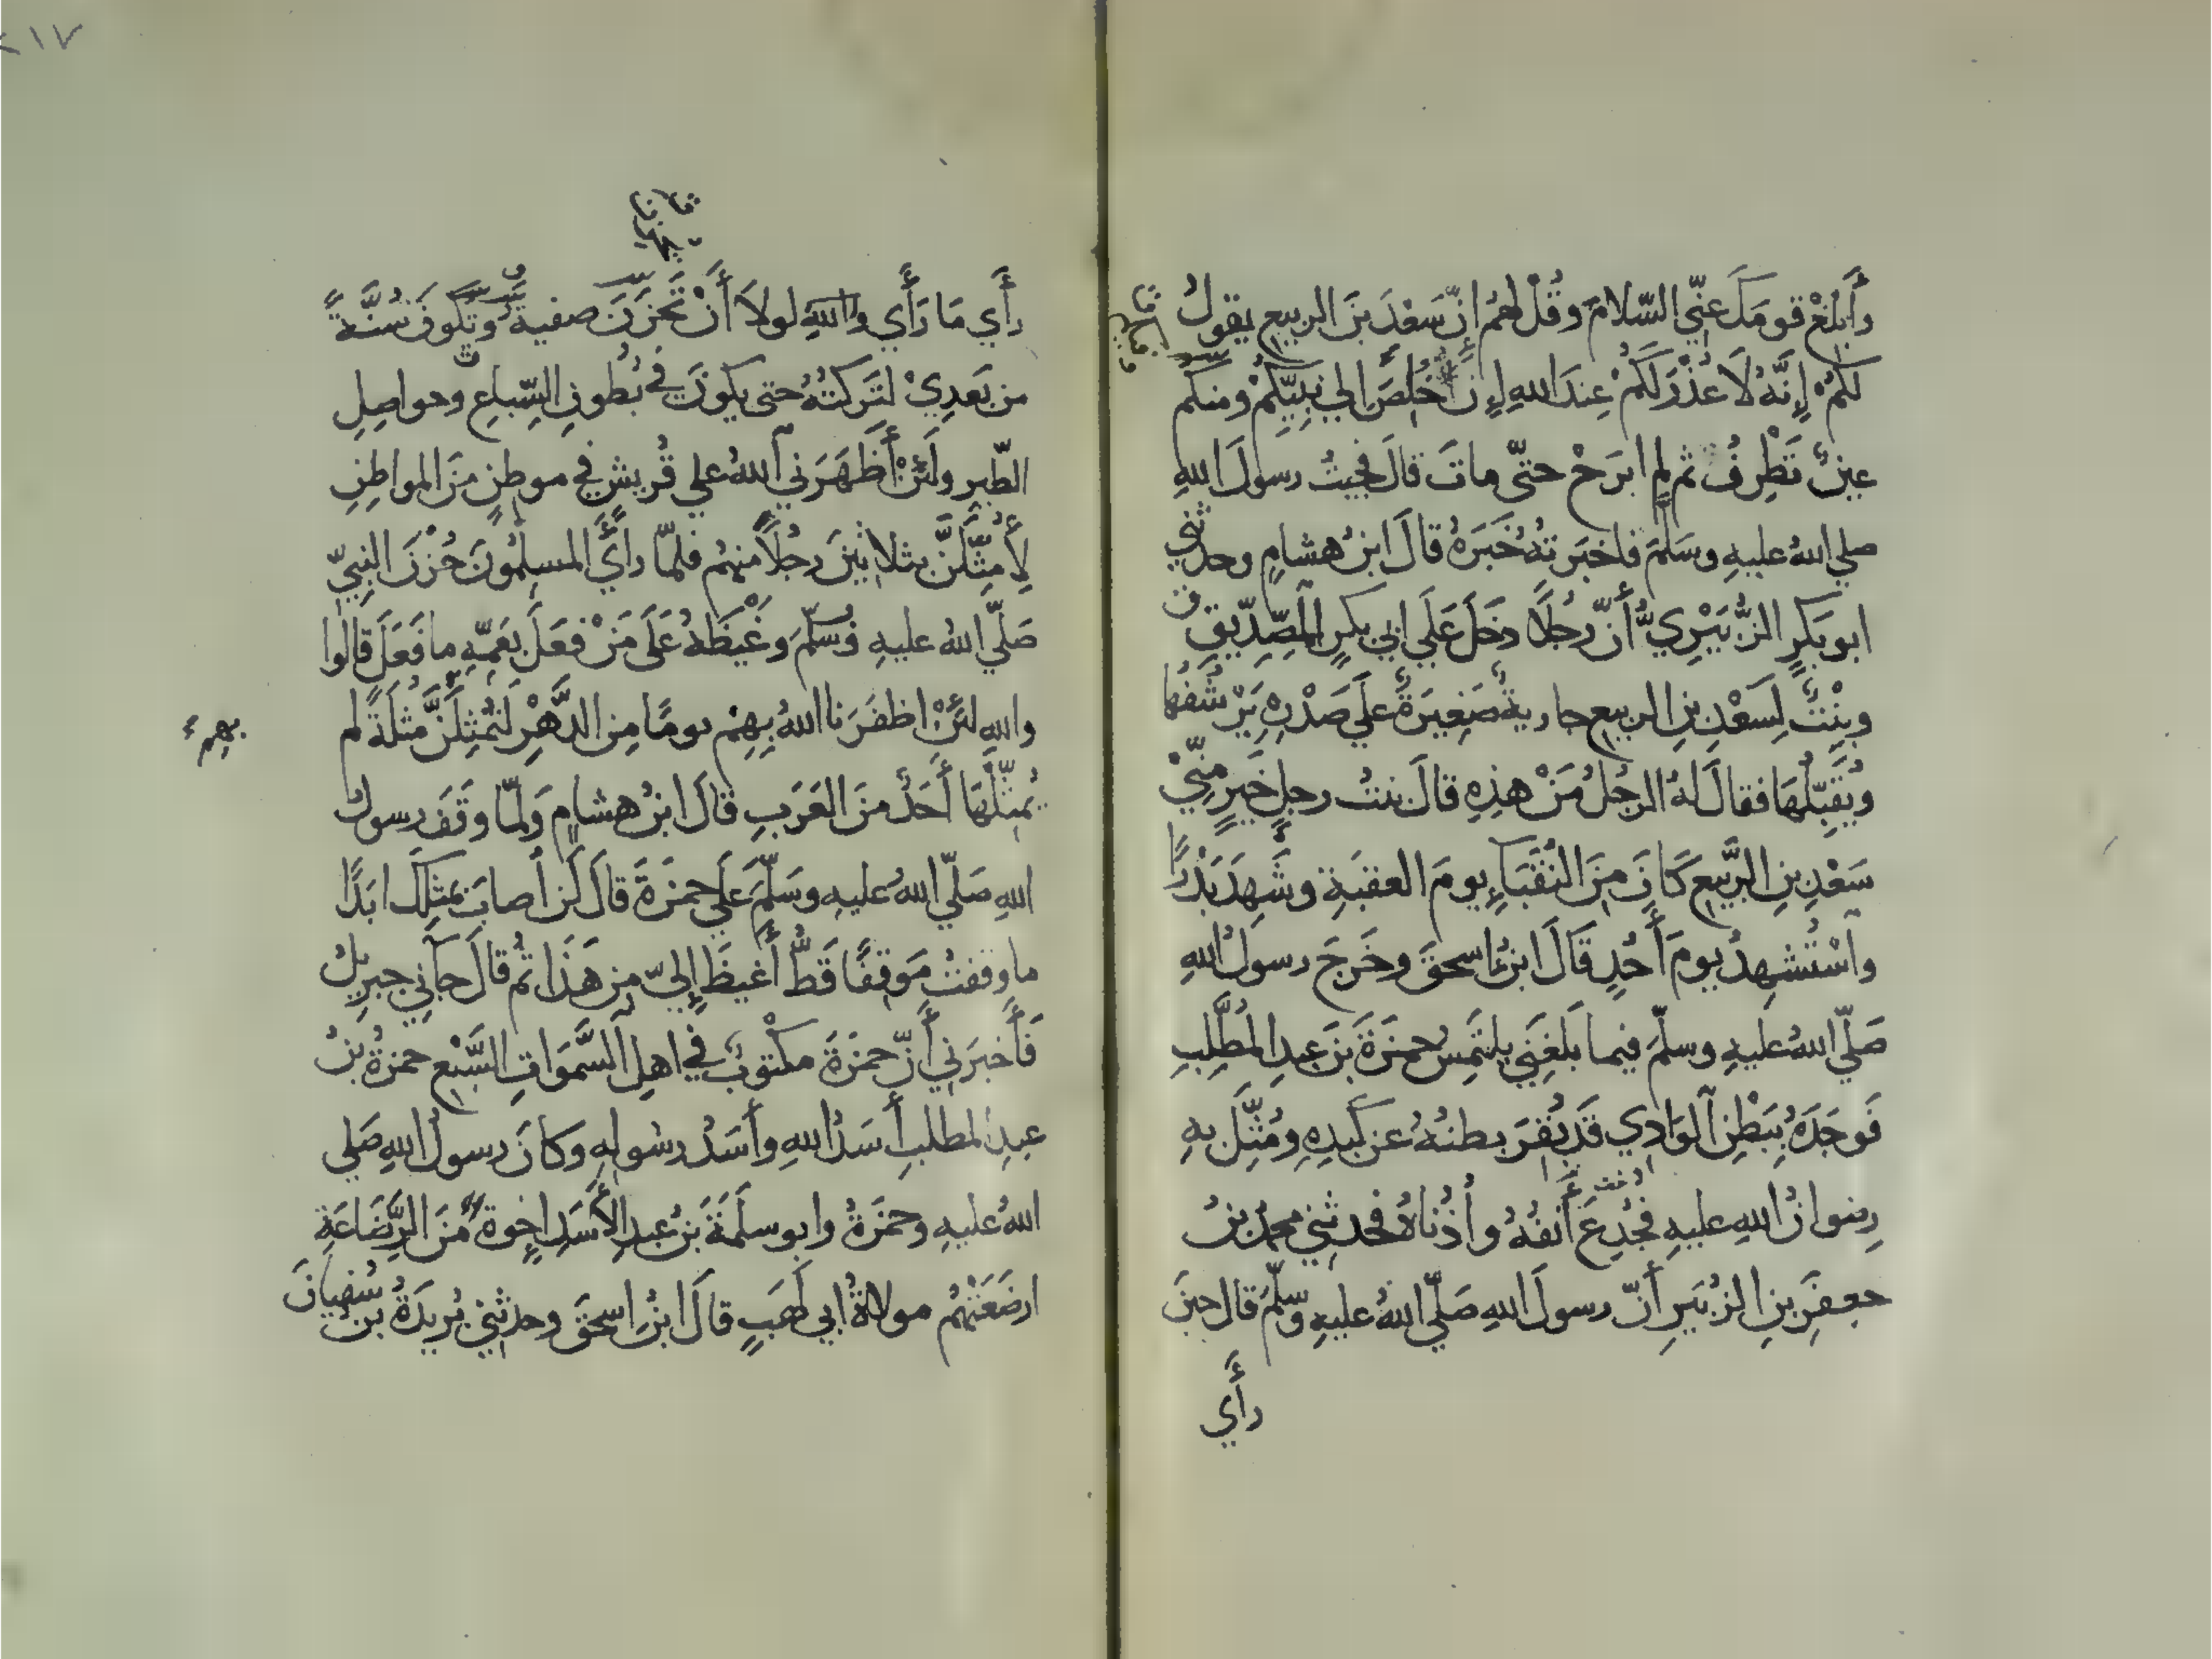 وَأَبْلِغْ قومَكَ عنِّي السّلامَ وقُلْ لهمُ إنّ سَعْدَ بنَ الربيعِ يقولُ
لكمُ إِنَّهُ لَا عُذْرَ لَكمْ عِندَ اللهِ إنْ خُلِصَ إلي نَبِيِّكمْ ومنكم
عينٌ تَطْرِفُ ثم لم ابرَحْ حتّى ماتَ قالَ فجيتُ رسولَ اللهِ
صلي اللهُ عليهِ وسَلَّمَ فاخبَرتهُ خَبَرَهُ قالَ ابنُ هشامٍ وحدثني
ابو بَكرٍ الزُّبَيْرِيُّ أنّ رجُلًا دخَلَ عَلَي ابي بكرٍ الصِّدّيقِ
وبِنْتٌ لِسَعْدِ بنِ الربيعِ جاريةٌ صَغِيرَةٌ علَي صَدْرِهِ يَرْشُفُها
وُيقَبِّلُهَا فقالَ لهُ الرجُلُ مَنْ هذِهِ قالَ بنتُ رجلٍ خَيرٍ مِنِّيْ
سَعْدِ بنِ الرَّبيعِ كَانَ مِنَ النُّقَبَاءِ يومَ العقبَةِ وشَهِدَ بَدْرًا
واسْتُشهِدَ يومَ أُحُدٍ قَالَ ابنُ اسحقَ وخَرجَ رسولُ اللهِ
صَلّي اللهُ عليهِ وسلّمَ فيما بَلَغَنِي يلتَمِسُ حمزَةَ بنَ عبدِ المُطَّلِبِ
فَوجَدَهُ بِبَطْنِ الوَادِي قَد بُقِرَ بطنُهُ عن كَبِدِهِ ومُثِّلَ بهِ
رِضوانُ اللهِ عليهِ فجُدِعَ أنفُهُ وأُذُناهُ فحدثني محمدُ بنُ
جعفَرِ بنِ الزُبَيرِ أنّ رسولَ اللهِ صَلّي اللهُ عليهِ وسلّمَ قال حينَ
رأَي
٢١٧
رأَي مَا رَأَي واللهِ لولَا أَنْ تَحْزَنَ صفيةُ وتكونَ سُنَّةً
من بَعدِيْ لتَركتُهُ حتى يكونَ في بُطونِ السِّباعِ وحواصِلِ
الطّيرِ ولَئِنْ أَظْهَرَني اللهُ علي قُريشٍ في موطنٍ منَ المواطِنِ
لأُمَثِّلَنَّ بثلاثينَ رجُلًا منهُم فلمّا رأَي المسلِمُونَ حُزْنَ النبِيّ
صَلّي اللهُ عليهِ وسلّمَ وغَيْظَهُ عَلَى مَنْ فعَلَ بعَمِّهِ ما فَعَلَ قالُوا
واللهِ لئِنْ اظفَرَنا اللهُ بِهِمْ يومًا مِن الدَّهْرِ لَنُمثِلَنَّ مُثلَةً لم
بهم
يُمثِّلْهَا أَحَدٌ منَ العَرَبِ قَالَ ابنُ هشامٍ وَلمّا وقَفَ رسولُ
اللهِ صَلّي اللهُ عليهِ وسَلّمَ عَلَي حمزَةَ قالَ لَن أصابَ بمثلِكَ ابَدًا
ما وقفتُ مَوقِفًا قَطُّ أَغيظَ إليّ مِن هَذَا ثم قالَ جاني جبريلُ
فَأَخبَرَنِي أَنّ حمزَةَ مكْتوبٌ في اهلِ السَّمَواتِ السَّبْعِ حمزَةُ بنُ
عبدِ المطلبِ أَسَدُ اللهِ وأَسَدُ رسُولِهِ وكانَ رسولُ اللهِ صَلي
اللهُ عليهِ وحمزَةُ وابو سلَمَةَ بنُ عبدِ الأَسَدِ اخوةً مِنَ الرَّضَاعَةِ
ارضَعَتْهُم مولاةُ ابي لَهَبٍ قالَ ابنُ اسحقَ وحدثني بُريدَةُ بنُ سُفيانَ